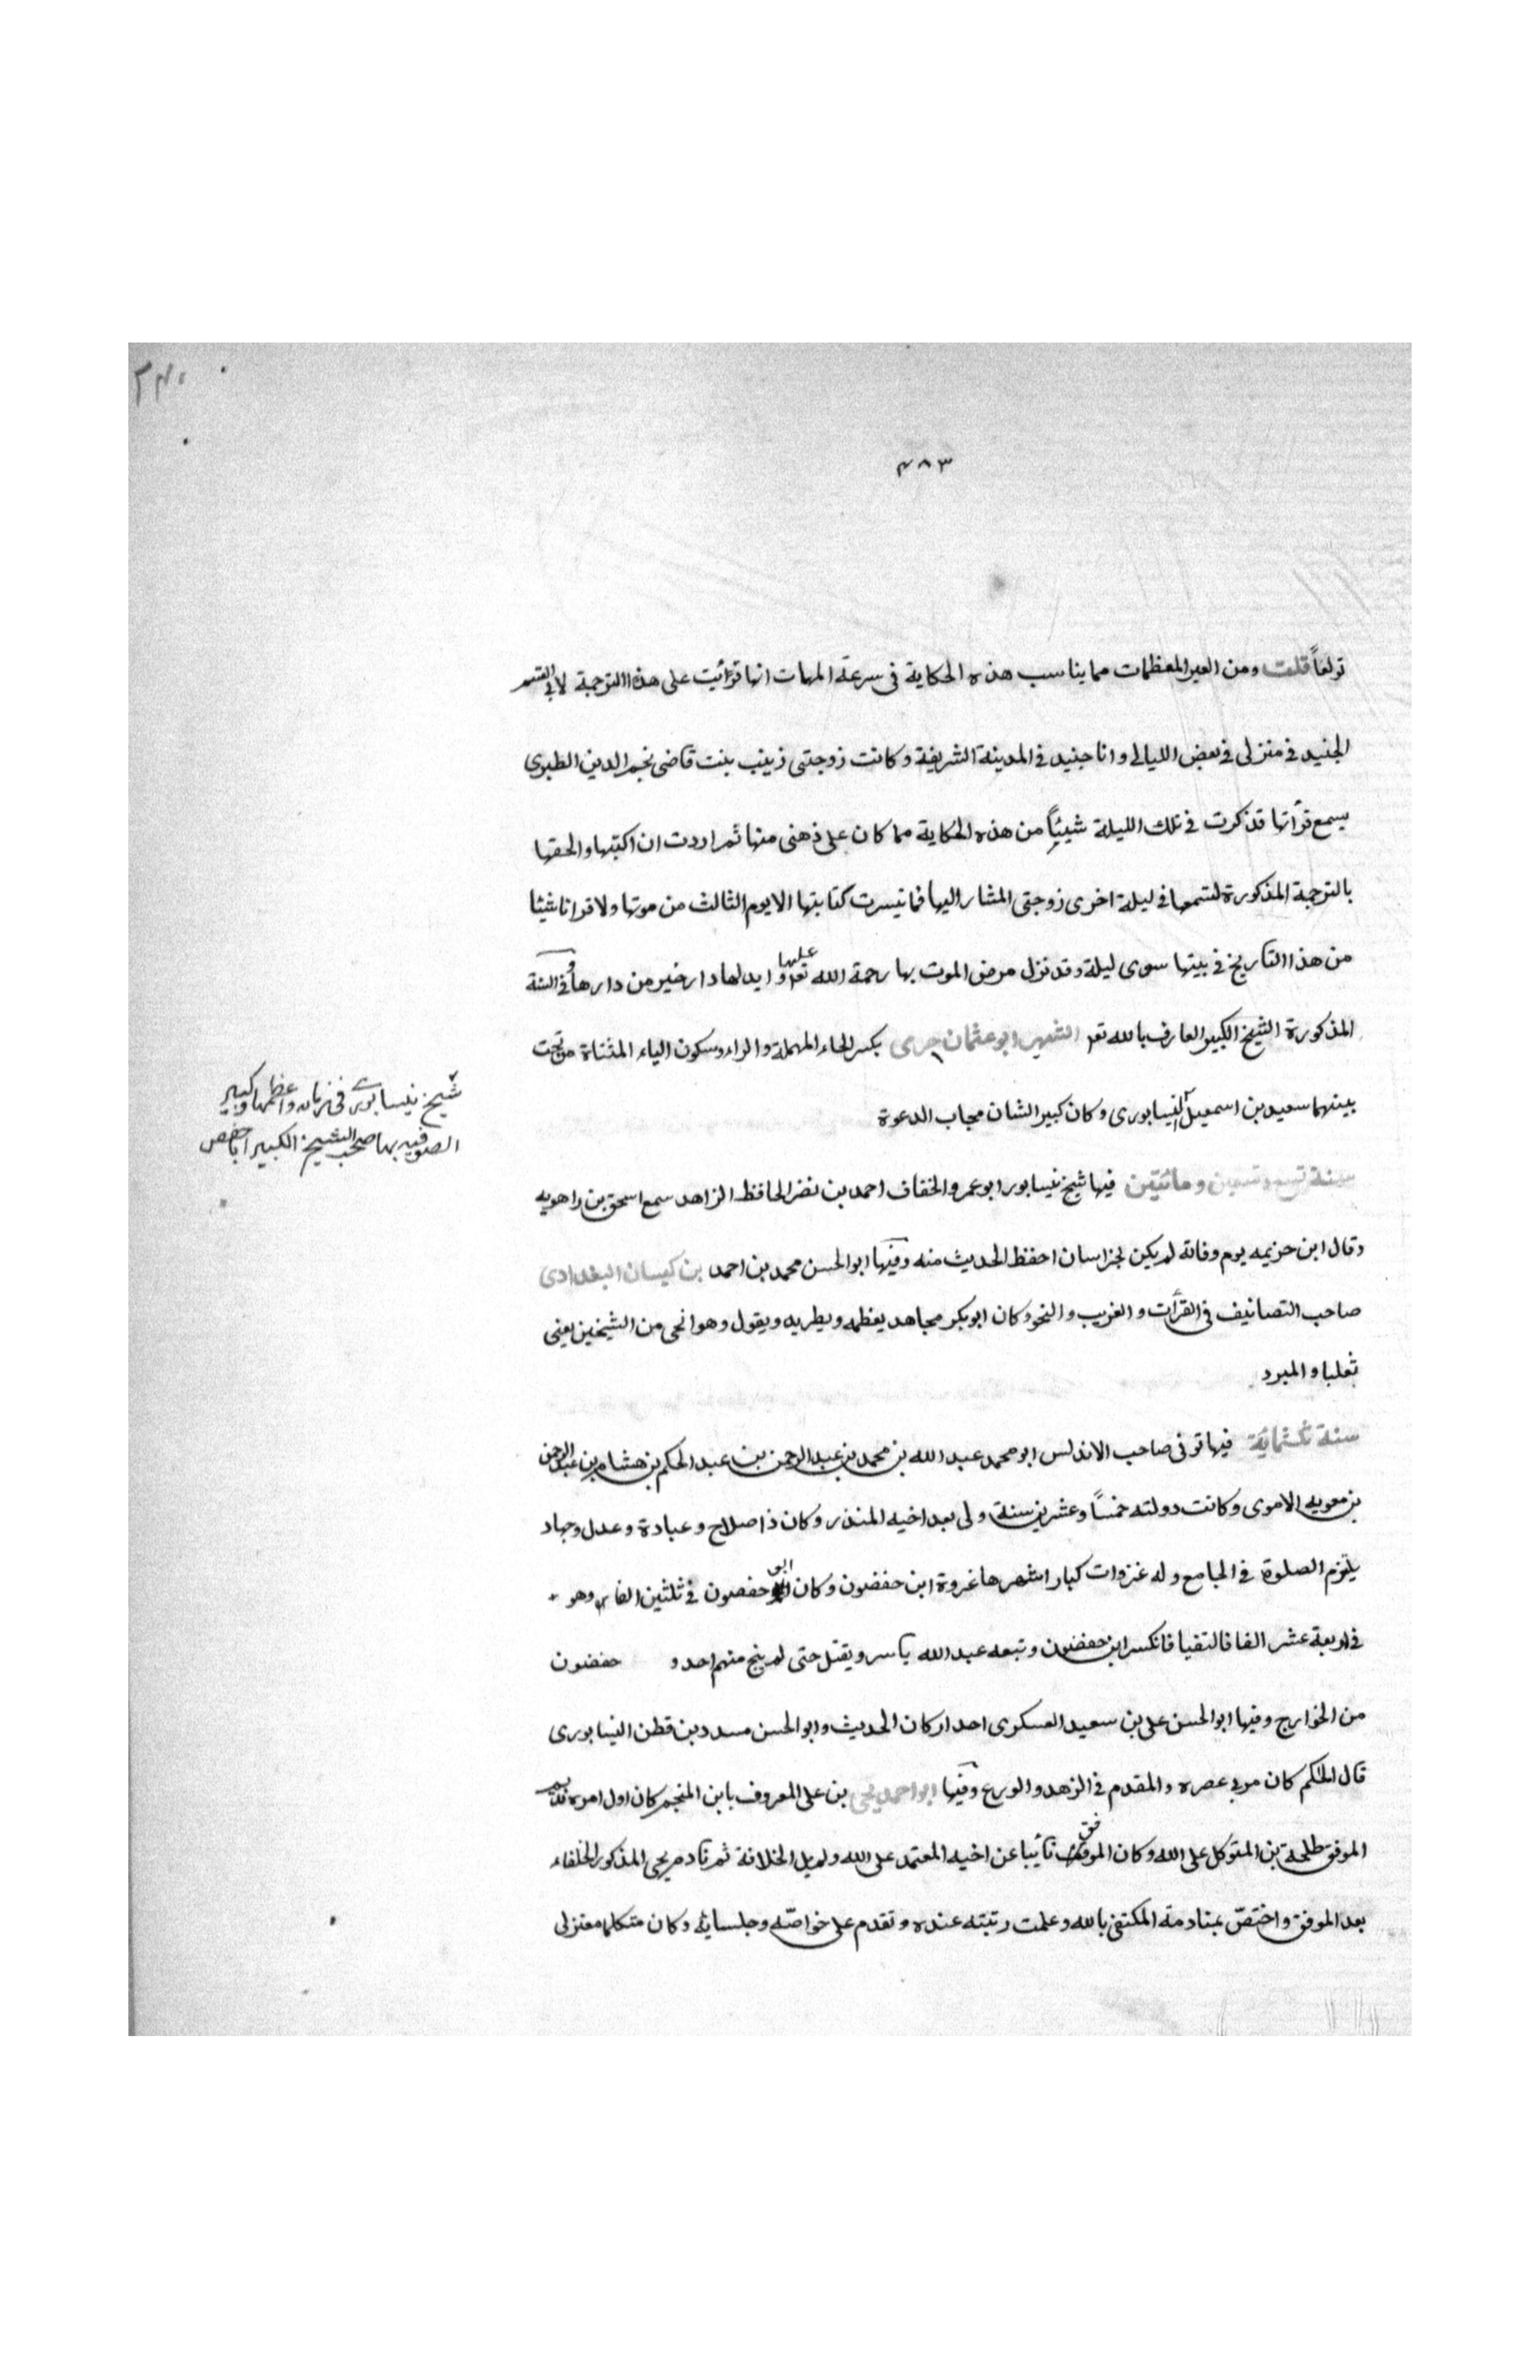 ٤٨٣
تولعاً قلت ومن العبر المعظمات مما يناسب هذه الحكاية فى سرعة الممات انها قرأئيت على هذه الترجمة لابى القسم
الجنيد فى منزلى فى بعض الليالى وانا جنيد فى المدينة الشريفة وكانت زوجتى زينب بنت قاضى نجم الدين الطبرى
يسمع قرأتها قذكرت فى تلك الليلة شيئياً من هذه الحكاية مما كان على ذهنى منها ثم اردت ان اكتبها والحقها
بالترجمة المذكورة لتسمعها فى ليلة اخرى زوجتى المشار اليها فما تيسرت كتابتها الا يوم الثالث من موتها ولا قرانا شيئا
من هذا التاريخ فى بيتها سوى ليلة وقد نزل مرض الموت بها رحمة الله تعم عليها وابدلها دار خير من دارها وفى السنة
المذكورة الشيخ الكبير العارف بالله تعم الشهير ابو عثمان حرى بكسر الحاء المهملة والراء وسكون الياء المثناة من تحت
بينهما سعيد بن اسمعيل النيسابورى وكان كبير الشان مجاب الدعوة
شيخ نيسابورى فى زمانه واعظمها وكبير
الصوفيه بها صحب الشيخ الكبير اباحفص
سنة تسع وتسعين ومائتين فيها شيخ نيسابور ابو عمرو الخفاف احمد بن نضر الحافظ الزاهد سمع اسحق بن راهويه
وقال ابن حزيمه يوم وفاته لم يكن بخراسان احفظ الحديث منه وفيها ابو الحسن محمد بن احمد بن كيسان البغدادى
صاحب التصانيف فى القرأت والغريب والنحو وكان ابو بكر مجاهد يعظمه ويطريه ويقول وهو انحى من الشيخين يعنى
ثعلبا والمبرد
سنة ثلثمائة فيها توفى صاحب الاندلس ابو محمد عبد الله بن محمد بن عبد الرحمن بن عبد الحكم بن هشام بن عبد الرحمن
بن معويه الاموى وكانت دولته خمساً وعشرين سنة ولى بعد اخيه المنذر وكان ذا صلاح وعبادة وعدل وجهاد
يلتزم الصلوة فى الجامع وله غزوات كبار اشهرها غروة ابن حفضون وكان ابن حفصون فى ثلثين الفا وهو
فى اربعة عشر الفا فالتفيا فانكسر ابن حفضون وتبعه عبد الله يأسر ويقتل حتى لم ينج منهم احد و حفضون
من الخوارج وفيها ابو الحسن على بن سعيد العسكرى احد اركان الحديث وابو الحسن مسدد بن قطن النيسابورى
قال الحاكم كان مربى عصره والمقدم فى الزهد والورع وفيها ابو احمد يحى بن على المعروف بابن المنجم كان اول امره نديم
الموفق طلحة بن المتوكل على الله وكان الموفق نائبا عن اخيه المعتمد على الله ولم يل الخلافة ثم نادم يحى المذكور الخلفاء
بعد الموفق واختصّ بمنادمة المكتفى بالله وعلمت رتبته عنده وتقدم على خواصّه وجلسائه وكان متكلما معتزلى